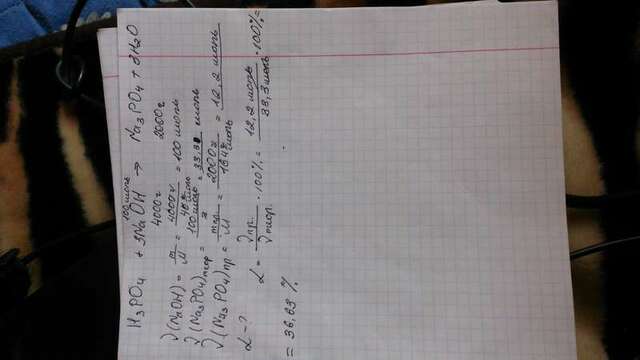 100 моль
H3PO4 + 3NaOH → Na3PO4 + 3H2O
4000г 2000г
ν(NaOH) = m/M = 4000г/40г/моль = 100 моль
ν(Na3PO4)теор = 100 моль/3 = 33,3 моль
ν(Na3PO4)пр = mпр./M = 2000г/164г/моль = 12,2 моль
α - ?
α = νпр./νтеор. · 100% = 12,2 моль/33,3 моль · 100% =
= 36,63 %